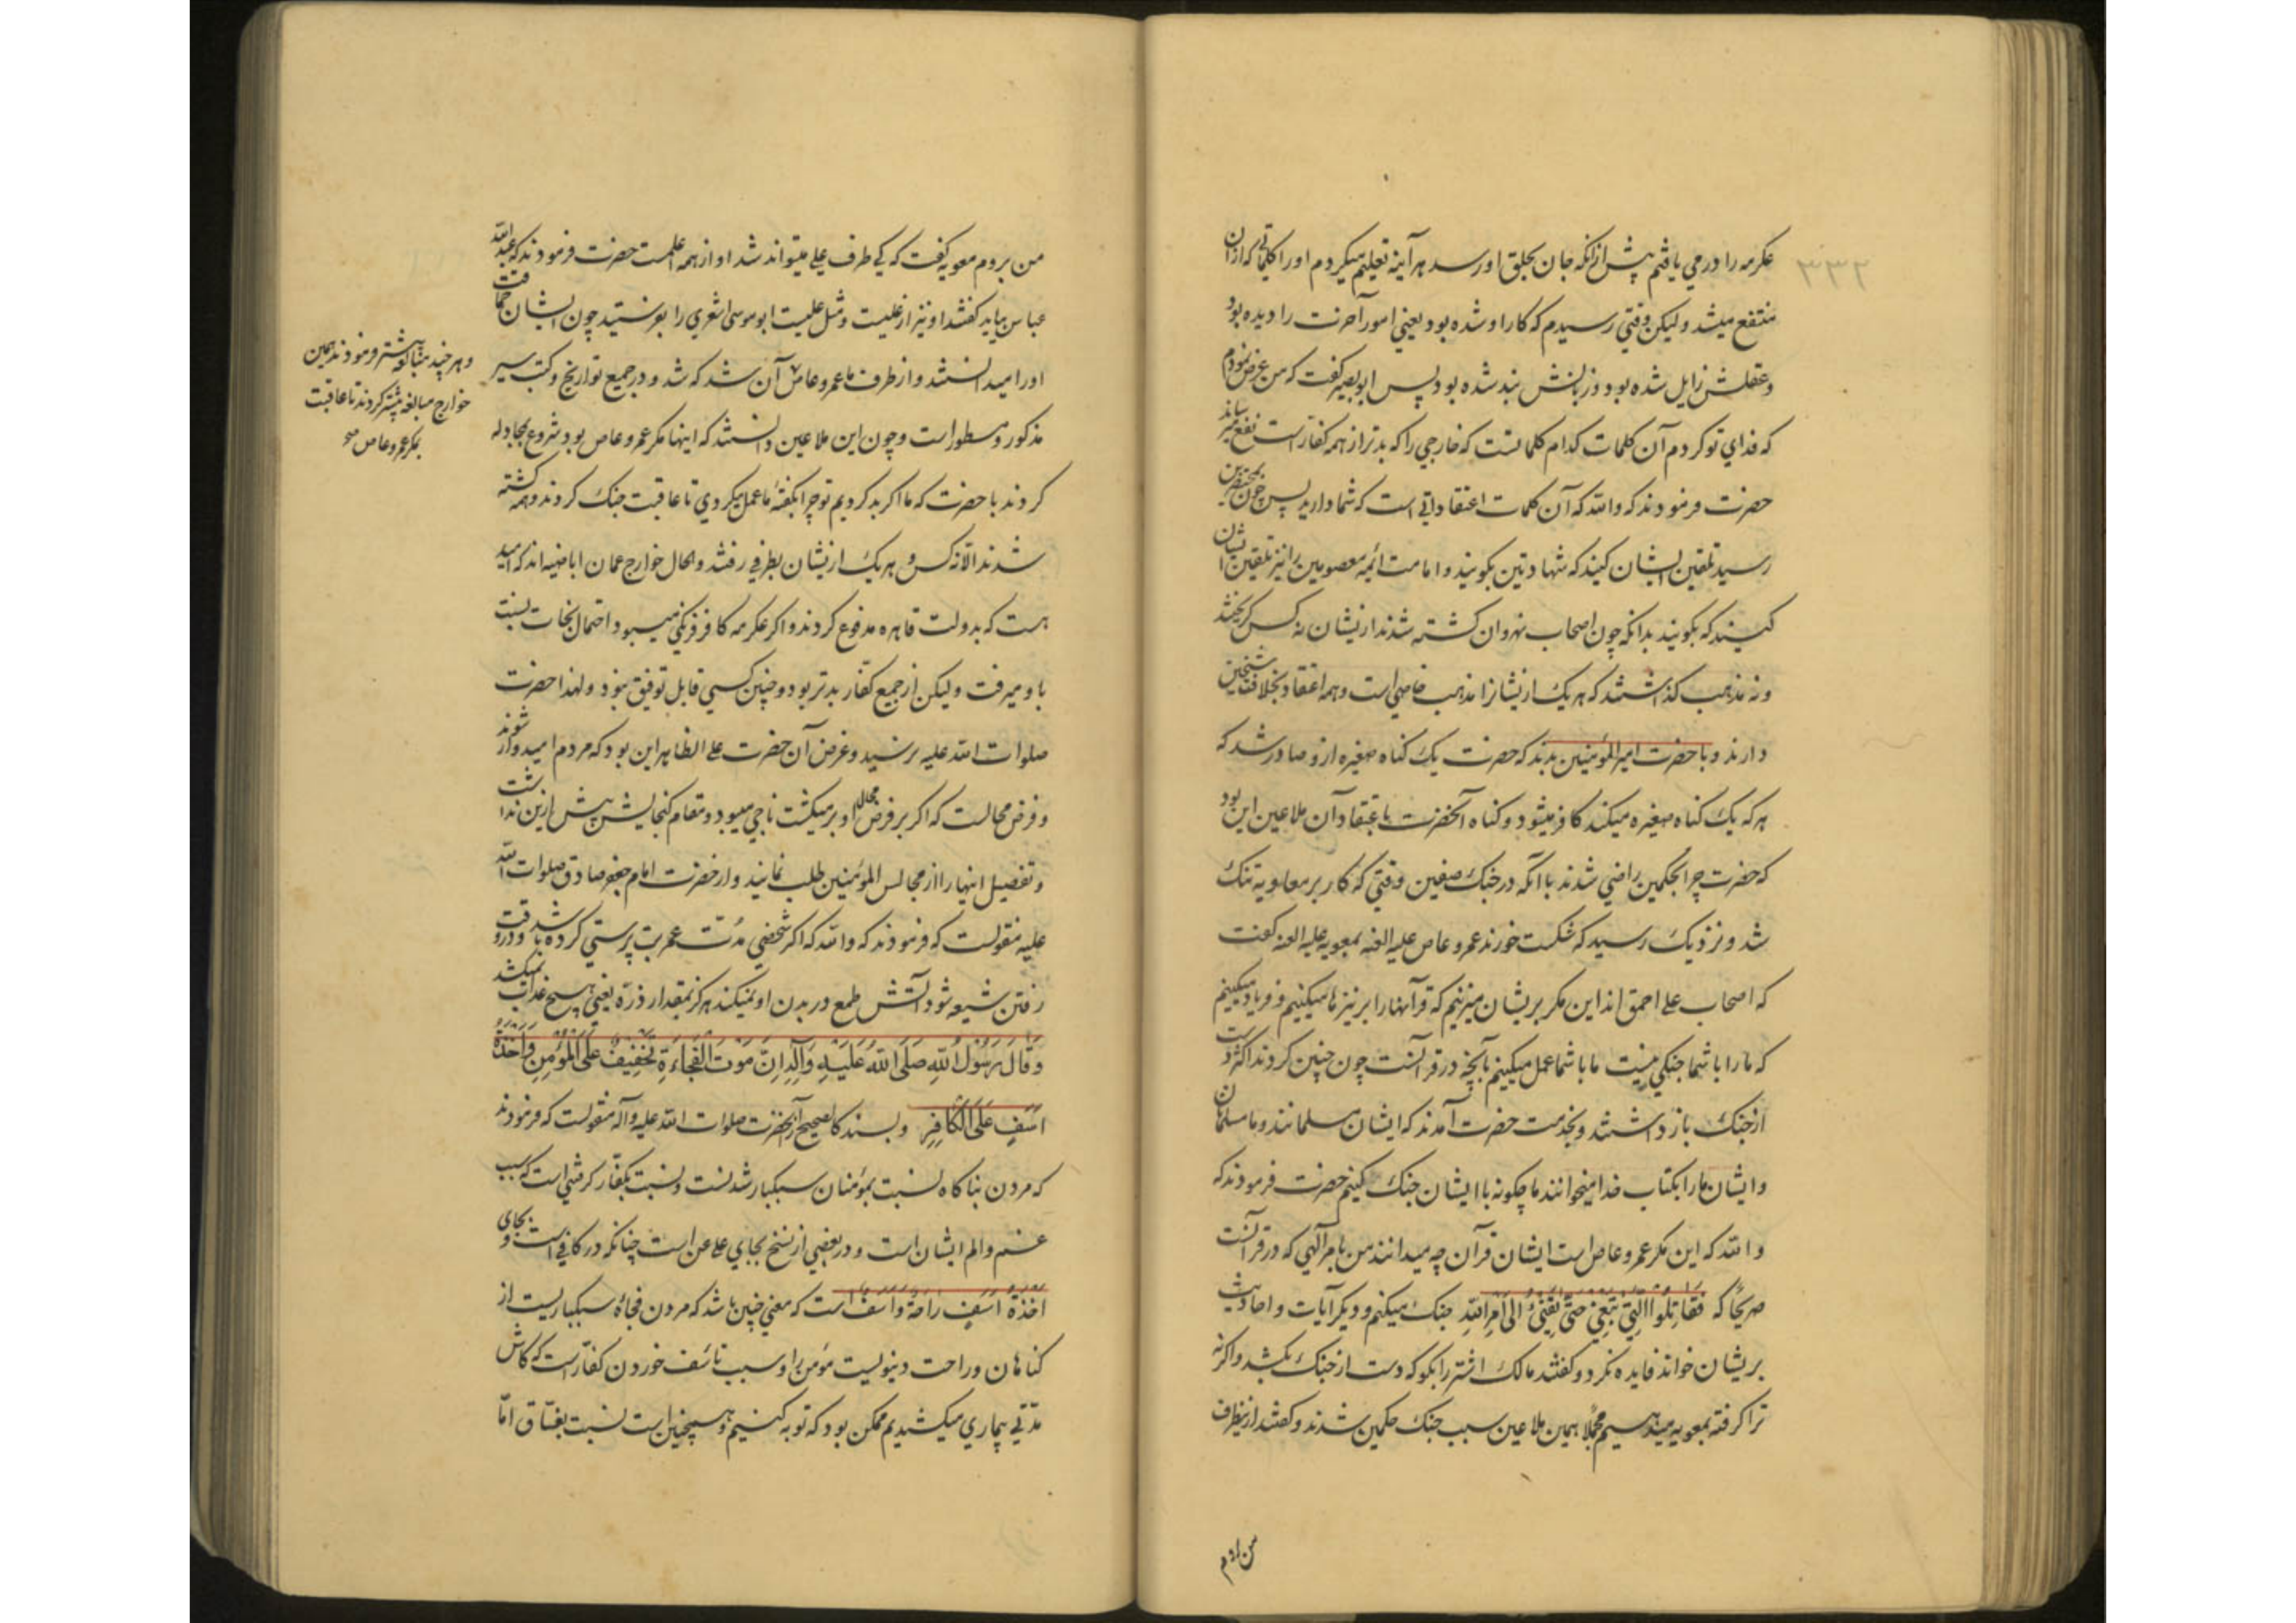 ۳۳۲
عکرمه را در می یافتم پیش از آنکه جان بحلق او رسد هر آینه تعلیم میکردم او را کلماتی که از ان
منتفع میشد و لیکن وقتی رسیدم که کار او شده بود یعنی امور آخرت را دیده بود
و عقلش زایل شده بود و زبانش بند شده بود پس ابو بصیر گفت که من عرض نمودم
که فدای تو کردم آن کلمات کدام کلماتست که خارجی را که بدتر از همه کفار است نفع میرساند
حضرت فرمودند که والله که آن کلمات اعتقاداتی است که شما دارید پس چون محتضرین
رسید تلقین ایشان کنید که شهادتین بکویند و امامت ائمه معصومین را نیز تلقین ایشان
کنیند که بکویند بدانکه چون اصحاب نهروان کشته شدند ازیشان نه کس کریختند
و نه مذهب کذاشتند که هر یک ازیشانرا مذهب خاصی است و همه اعتقاد بخلافت شیخین
دارند و با حضرت امیر المؤمنین بدند که حضرت یک کناه صغیره ازو صادر شد که
هر که یک کناه صغیره میکند کافر میشود و کناه آنحضرت باعتقاد آن ملاعین این بود
که حضرت چرا بحکمین راضی شدند با آنکه در جنک صفین وقتی که کار بر معاویه تنک
شد و نزدیک رسید که شکست خورند عمرو عاص علیه العنه بمعویه علیه العنه کفت
که اصحاب علی احمق اند این مکر بریشان میزنیم که قرآنها را بر نیزها میکنیم و فریاد میکنیم
که ما را با شما جنکی نیست ما با شما عمل میکنیم بآنچه در قرآنست چون چنین کردند اکثر دست
از جنک باز داشتند و بخدمت حضرت آمدند که ایشان مسلمانند و ما مسلمان
و ایشان ما را بکتاب خدا میخوانند ما چکونه با ایشان جنک کنیم حضرت فرمودند که
والله که این مکر عمرو عاص است ایشان قرآن چه میدانند من بامر آلهی که در قرآنست
صریحًا که فَقَاتِلُوا الَّتِی تَبْغِی حَتَّی تَفِیءَ اِلَی اَمْرِ اللهِ جنک میکنم و دیکر آیات و احادیث
بریشان خواند فایده نکرد و کفتند مالک اشتر را بکو که دست از جنک بکشد و اکر نه
ترا کرفته بمعویه میدهیم مجملًا همین ملاعین سبب جنک حکمین شدند و کفتند ازینطرف
من بروم معویه کفت که کی طرف علی میتواند شد او از همه اعلمست حضرت فرمودند که عبد الله
عباس بیاید کفتند او نیز از علیست و مثل علیست ابو موسی اشعری را بفرستید چون ایشان حماقت
او را میدانستند و از طرف ما عمرو عاص آن شد که شد و در جمیع تواریخ و کتب سیر
مذکور و مسطور است و چون این ملاعین دانستند که اینها مکر عمرو عاص بود شروع بمجادله
کردند با حضرت که ما اکر بد کردیم تو چرا بکفته ما عمل میکردی تا عاقبت جنک کردند و همه کشته
شدند الا نه کس و هر یک ازیشان بطرفی رفتند و الحال خوارج عمان اباضیه اند که امید
هست که بدولت قاهره مدفوع کردند و اکر عکرمه کافر فرنکی میبود احتمال نجات نسبت
باو میرفت و لیکن از جمیع کفّار بدتر بود و چنین کسی قابل توفیق نبود و لهذا حضرت
صلوات الله علیه نرسید و غرض آن حضرت علی الظاهر این بود که مردم امیدوار شوند
و فرض محالست که اکر بر فرض محال او بر میکشت ناجی میبود و مقام کنجایش بیش ازین نداشت
و تفصیل اینها را از مجالس المؤمنین طلب نمایند و از حضرت امام جعفر صادق صلوات الله
علیه منقولست که فرمودند که والله که اکر شخصی مدّت عمر بت پرستی کرده باشد و در وقت
رفتن شیعه شود آتش طمع در بدن او نمیکند هرکز بمقدار ذرّه یعنی هیچ عذاب نمیکشد
وَ قَالَ رَسُولُ اللهِ صَلَّی اللهُ عَلَیْهِ وَآلِهِ اِنَّ مَوْتَ الْفَجْاءَةِ تَخْفِیفٌ عَلَی الْمُؤْمِنِ وَ اَخْذَةُ
اَسَفٍ عَلَی الْکَافِرِ و بسند کالصحیح از آنحضرت صلوات الله علیه و آله منقولست که فرمودند
که مردن بناکاه نسبت بمؤمنان سبکبار شدنست و نسبت بکفّار کرفتنی است که سبب
غم و الم ایشان است و در بعضی از نسخ بجای علی عن است چنانکه در کافی است و بجای
اَخْذَةُ اَسَفٍ رَاحَةٌ وَ اَسَفٌ است که معنی چنین باشد که مردن فجاة سبکباریست از
کناهان و راحت دنیویست مؤمن را و سبب تاسّف خوردن کفّار است که کاش
مدّتی بیماری میکشیدیم ممکن بود که توبه کنیم و همچنین است نسبت بفسّاق امّا
و هر چند مبالغه بیشتر فرمودند همین
خوارج مبالغه بیشتر کردند تا عاقبت
بمکر عمرو عاص صح